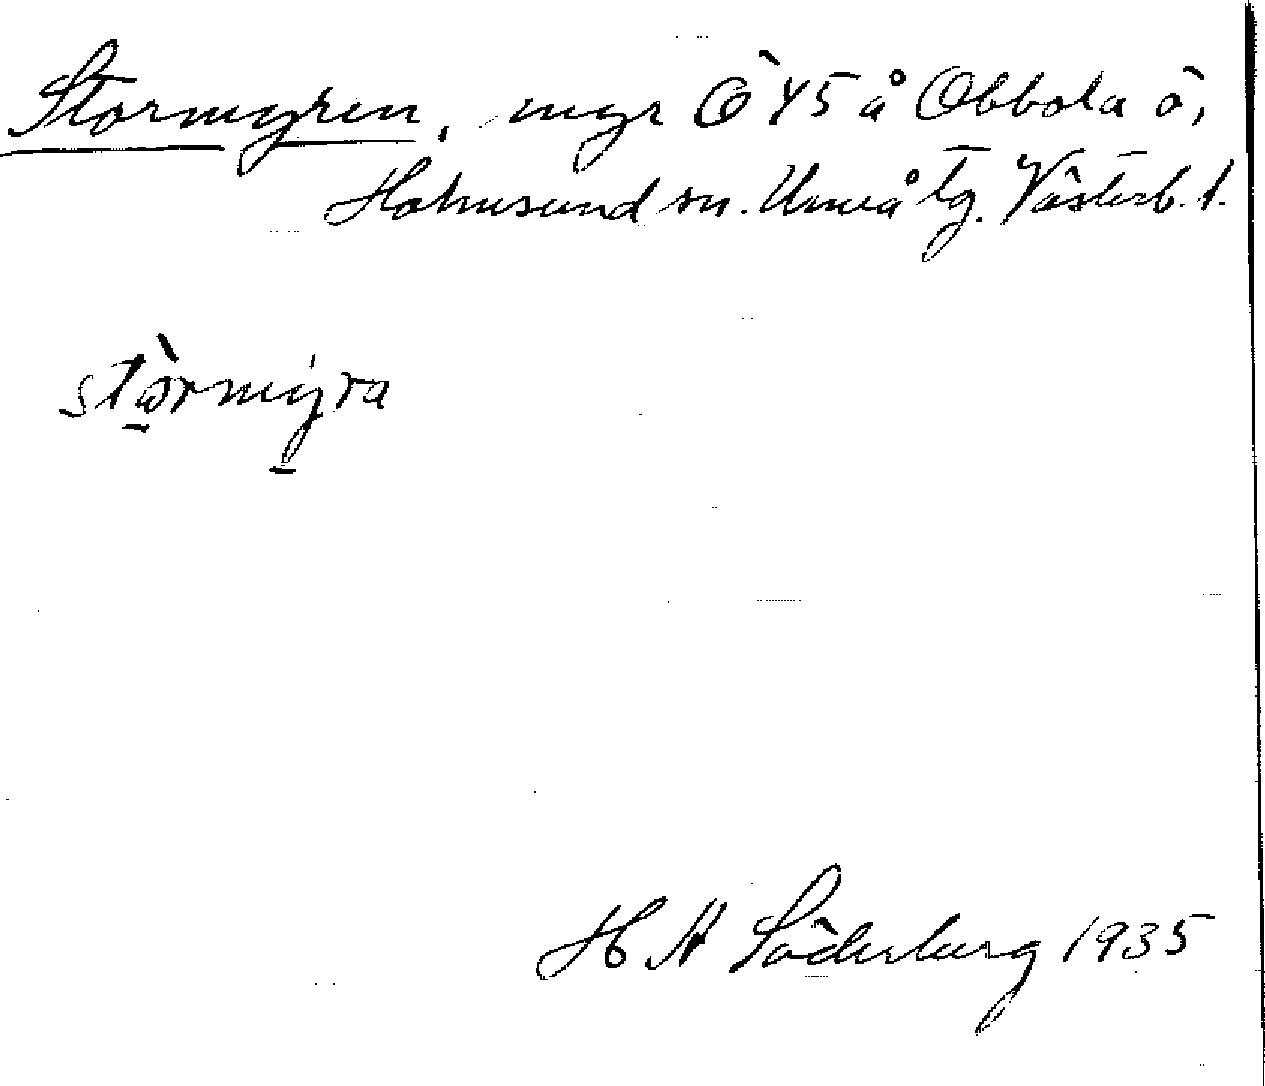 Stormyren, myr Ö 45 å Obbola ö,
Holmsund sn. Umeå tg. Västerb. l.
stormyra
H A Söderberg 1935